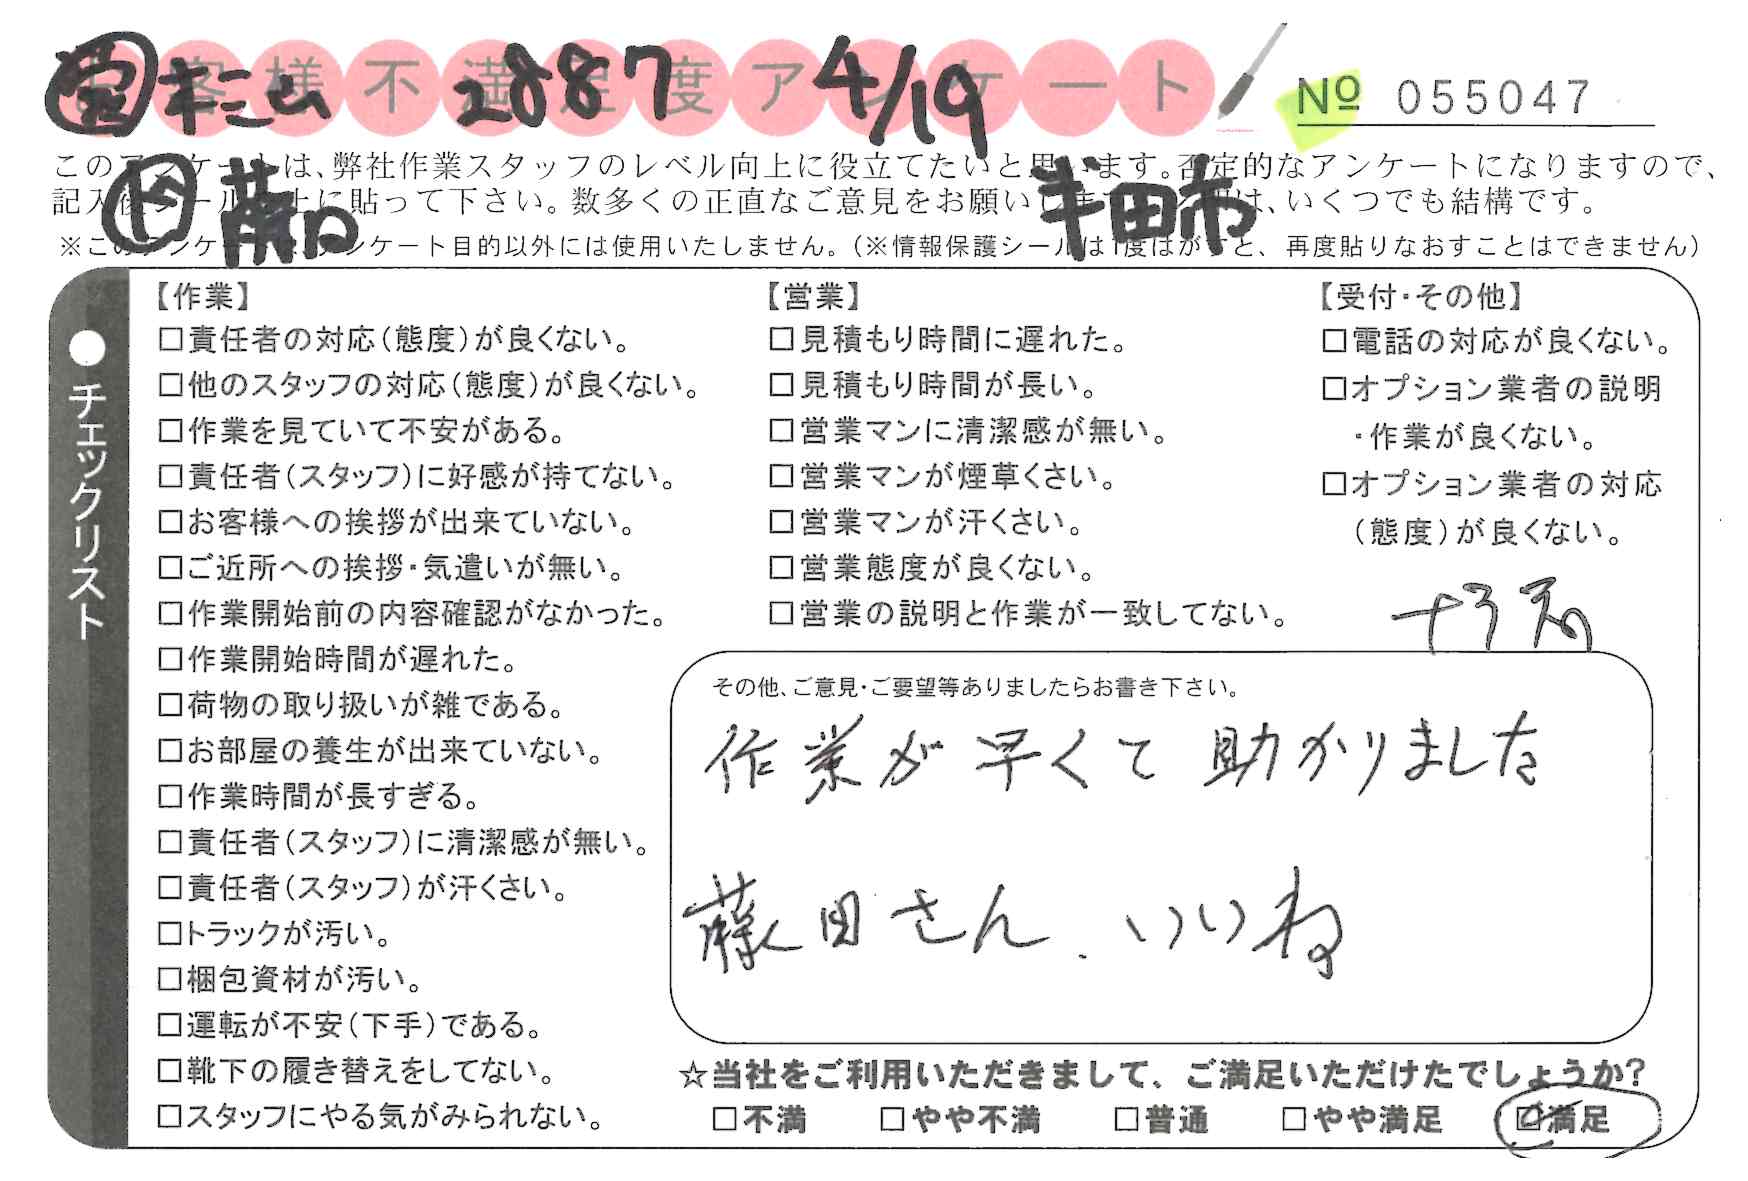 お客様不満足度アンケート
2887 4/19
№ 055047
このアンケートは、弊社作業スタッフのレベル向上に役立てたいと思います。否定的なアンケートになりますので、
記入後シールを上に貼って下さい。数多くの正直なご意見をお願いします。 は、いくつでも結構です。
半田市
※このアンケートは、アンケート目的以外には使用いたしません。(※情報保護シールは1度はがすと、再度貼りなおすことはできません)
●チェックリスト
【作業】
□責任者の対応(態度)が良くない。
□他のスタッフの対応(態度)が良くない。
□作業を見ていて不安がある。
□責任者(スタッフ)に好感が持てない。
□お客様への挨拶が出来ていない。
□ご近所への挨拶・気遣いが無い。
□作業開始前の内容確認がなかった。
□作業開始時間が遅れた。
□荷物の取り扱いが雑である。
□お部屋の養生が出来ていない。
□作業時間が長すぎる。
□責任者(スタッフ)に清潔感が無い。
□責任者(スタッフ)が汗くさい。
□トラックが汚い。
□梱包資材が汚い。
□運転が不安(下手)である。
□靴下の履き替えをしてない。
□スタッフにやる気がみられない。
【営業】
□見積もり時間に遅れた。
□見積もり時間が長い。
□営業マンに清潔感が無い。
□営業マンが煙草くさい。
□営業マンが汗くさい。
□営業態度が良くない。
□営業の説明と作業が一致してない。
【受付・その他】
□電話の対応が良くない。
□オプション業者の説明
・作業が良くない。
□オプション業者の対応
(態度)が良くない。
その他、ご意見・ご要望等ありましたらお書き下さい。
作業が早くて助かりました
藤田さん、いいね
☆当社をご利用いただきまして、ご満足いただけたでしょうか?
□不満 □やや不満 □普通 □やや満足 ☑満足